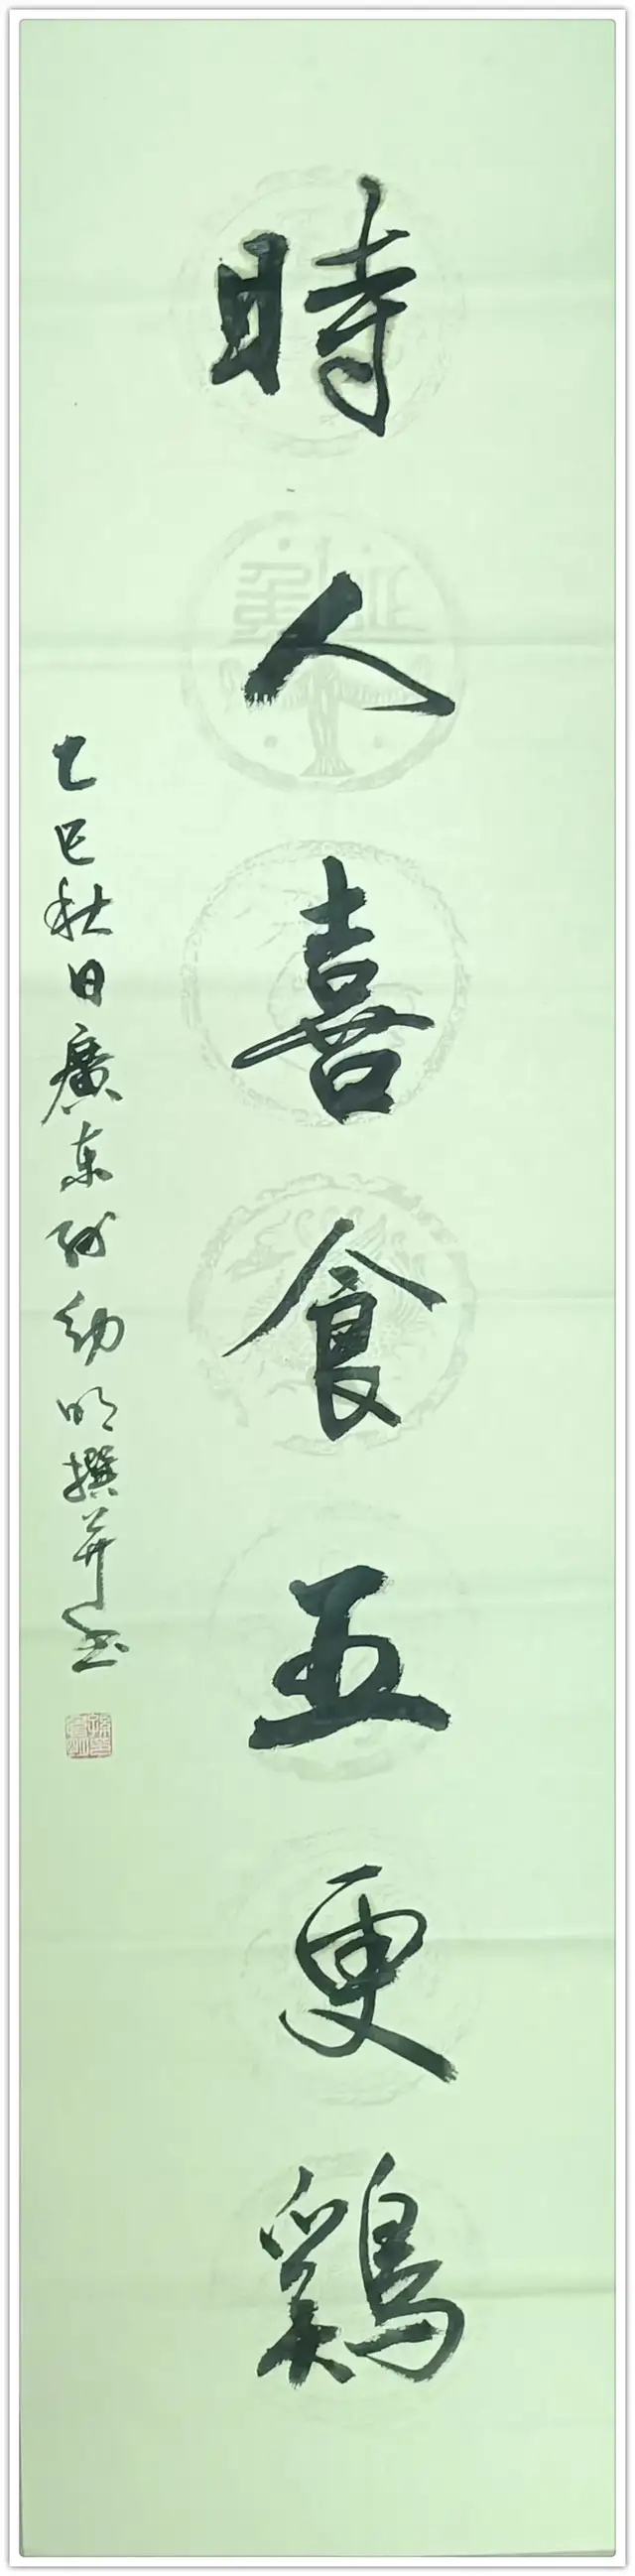 時人喜食五更鷄
乙巳秋日廣东孙幼明撰并书